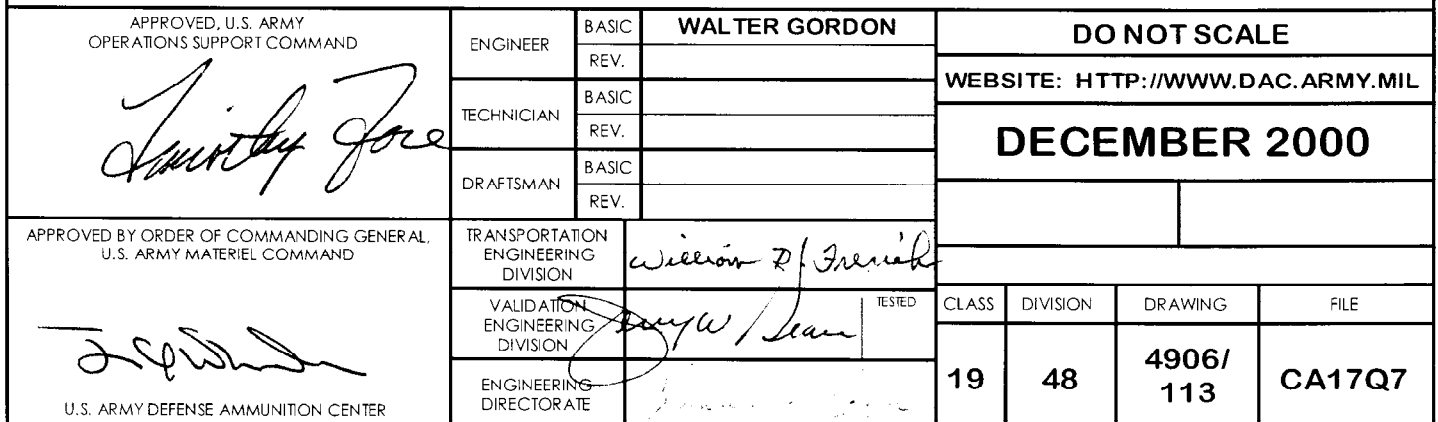 APPROVED, U.S. ARMY
OPERATIONS SUPPORT COMMAND
Timothy Fore
APPROVED BY ORDER OF COMMANDING GENERAL,
U.S. ARMY MATERIEL COMMAND
U.S. ARMY DEFENSE AMMUNITION CENTER
ENGINEER
BASIC
WALTER GORDON
REV.
TECHNICIAN
BASIC
REV.
DRAFTSMAN
BASIC
REV.
TRANSPORTATION
ENGINEERING
DIVISION
William R.
VALIDATION
ENGINEERING
DIVISION
TESTED
ENGINEERING
DIRECTORATE
DO NOT SCALE
WEBSITE: HTTP://WWW.DAC.ARMY.MIL
DECEMBER 2000
CLASS DIVISION DRAWING FILE
19 48 4906/ CA17Q7
113